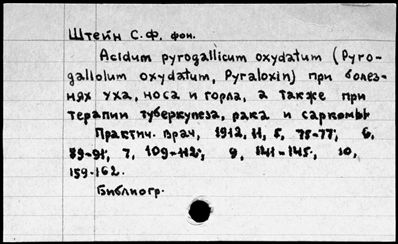 Штейн С.Ф. фон.
Acidum pyrogallicum oxydatum (Pyro-
gallolum oxydatum, Pyraloxin) при болез-
нях уха, носа и горла, а также при
терапии туберкулеза, рака и саркомы
Практич. врач, 1912, 11, 5, 75-77; 6,
89-91, 7, 109-112; 9, 141-145, 10,
159-162.
Библиогр.